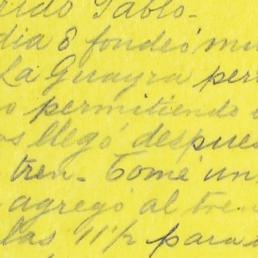 rido Pablo-
dia 8 fondeó mu
La Guayra per
o permitiendo
os llegó despues
tren- Tomé un
agregó al tre
las 11½ para